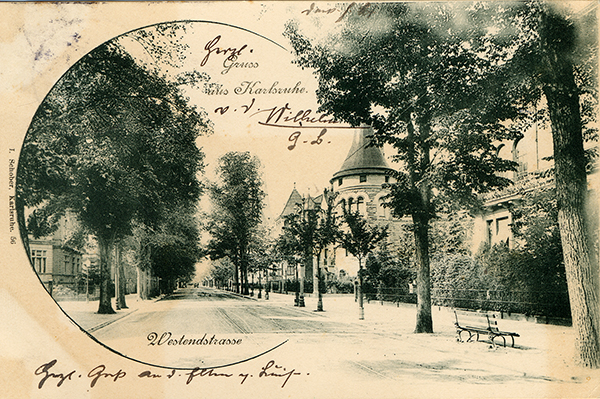 Herzl.
Gruss
aus Karlsruhe.
v. d. Wilhelm
g. L.
I. Schober, Karlsruhe. 56
Westendstrasse
Herzl. Gruß an d. Eltern u.